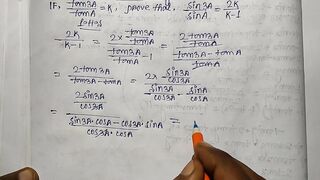 IF, tan3A/tanA = K, prove that, sin3A/sinA = 2K/K-1
L.H.S
2K/K-1 = 2× tan3A/tanA / tan3A/tanA - 1 = 2tan3A/tanA / tan3A-tanA/tanA
= 2tan3A/tan3A-tanA = 2× sin3A/cos3A / sin3A/cos3A - sinA/cosA
= 2sin3A/cos3A / sin3A·cosA-cos3A·sinA/cos3A·cosA =